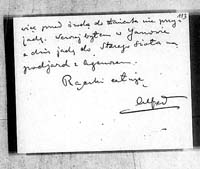 113
więc przed środą do świata nie przy-
jadę. Wczoraj byłem w Janowie
a dziś jadę do Starego Sioła na
podjazd z Agenorem.
Rączki całuję
Alfred